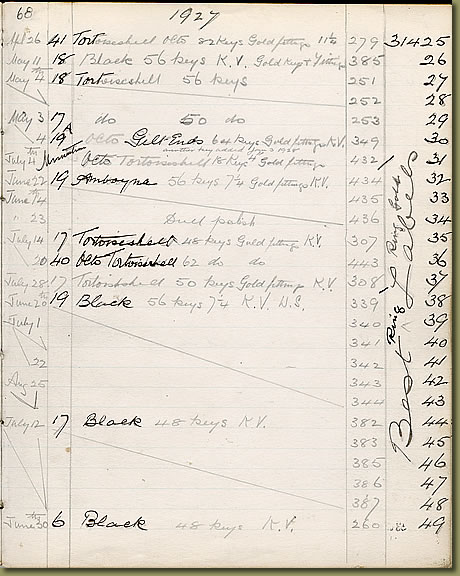 68 1927
April 26 41 Tortoiseshell Octo 82 Keys Gold fittings 11½ 279 31425
May 11 18 Black 56 Keys K.V. Gold Keys & fittings 385 26
May 4th 18 Tortoiseshell 56 Keys 251 27
252 28
May 3 17 do 50 do 253 29
4 19 A Octo Gilt Ends 64 Keys Gold fittings K.V. 349 30
another key added
July 4th Minute Octo Tortoiseshell 18 Keys Gold fittings 432 31
June 22 19 Amboyna 56 Keys 7¼ Gold fittings K.V. 434 32
June 14th 435 33
" 23 Duet 436 34
July 14 17 Tortoiseshell 48 Keys Gold fittings K.V. 307 35
20 40 Octo Tortoiseshell 62 do do 443 36
July 28 17 Tortoiseshell 50 Keys Gold fittings K.V. 308 37
June 20th 19 Black 56 Keys 7¼ K.V. N.S. 339 38
July 1 340 39
341 40
22 342 41
Aug 25 343 42
344 43
July 12 17 Black 48 Keys K.V. 382 44
383 45
385 46
386 47
387 48
June 30th 6 Black 48 Keys K.V. 260 49
Best Ring Labels
Ring Gold